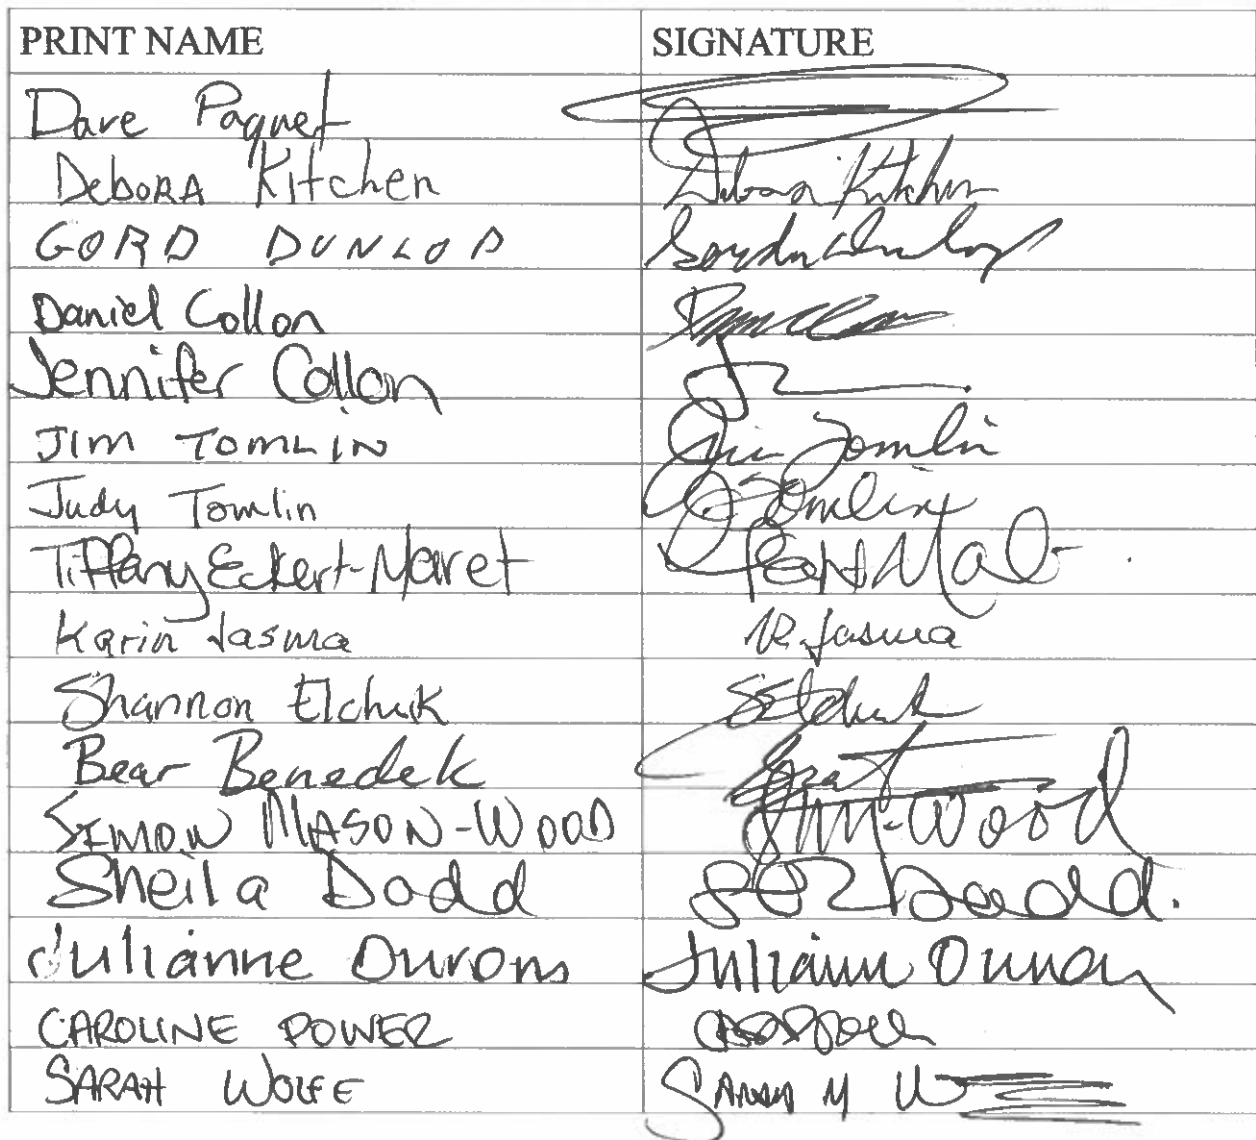 PRINT NAME SIGNATURE
Dave Paquet
Debora Kitchen Debora Kitchen
GORD DUNLOP Gordon Dunlop
Daniel Collon
Jennifer Collon
JIM TOMLIN Jim Tomlin
Judy Tomlin J Tomlin
Tiffany Eckert-Maret
Karin Jasma K. Jasma
Shannon Elchuk SElchuk
Bear Benedek
SIMON MASON-WOOD SM-Wood
Sheila Dodd Dodd.
Julianne
CAROLINE POWER
SARAH WOLFE SARAH M